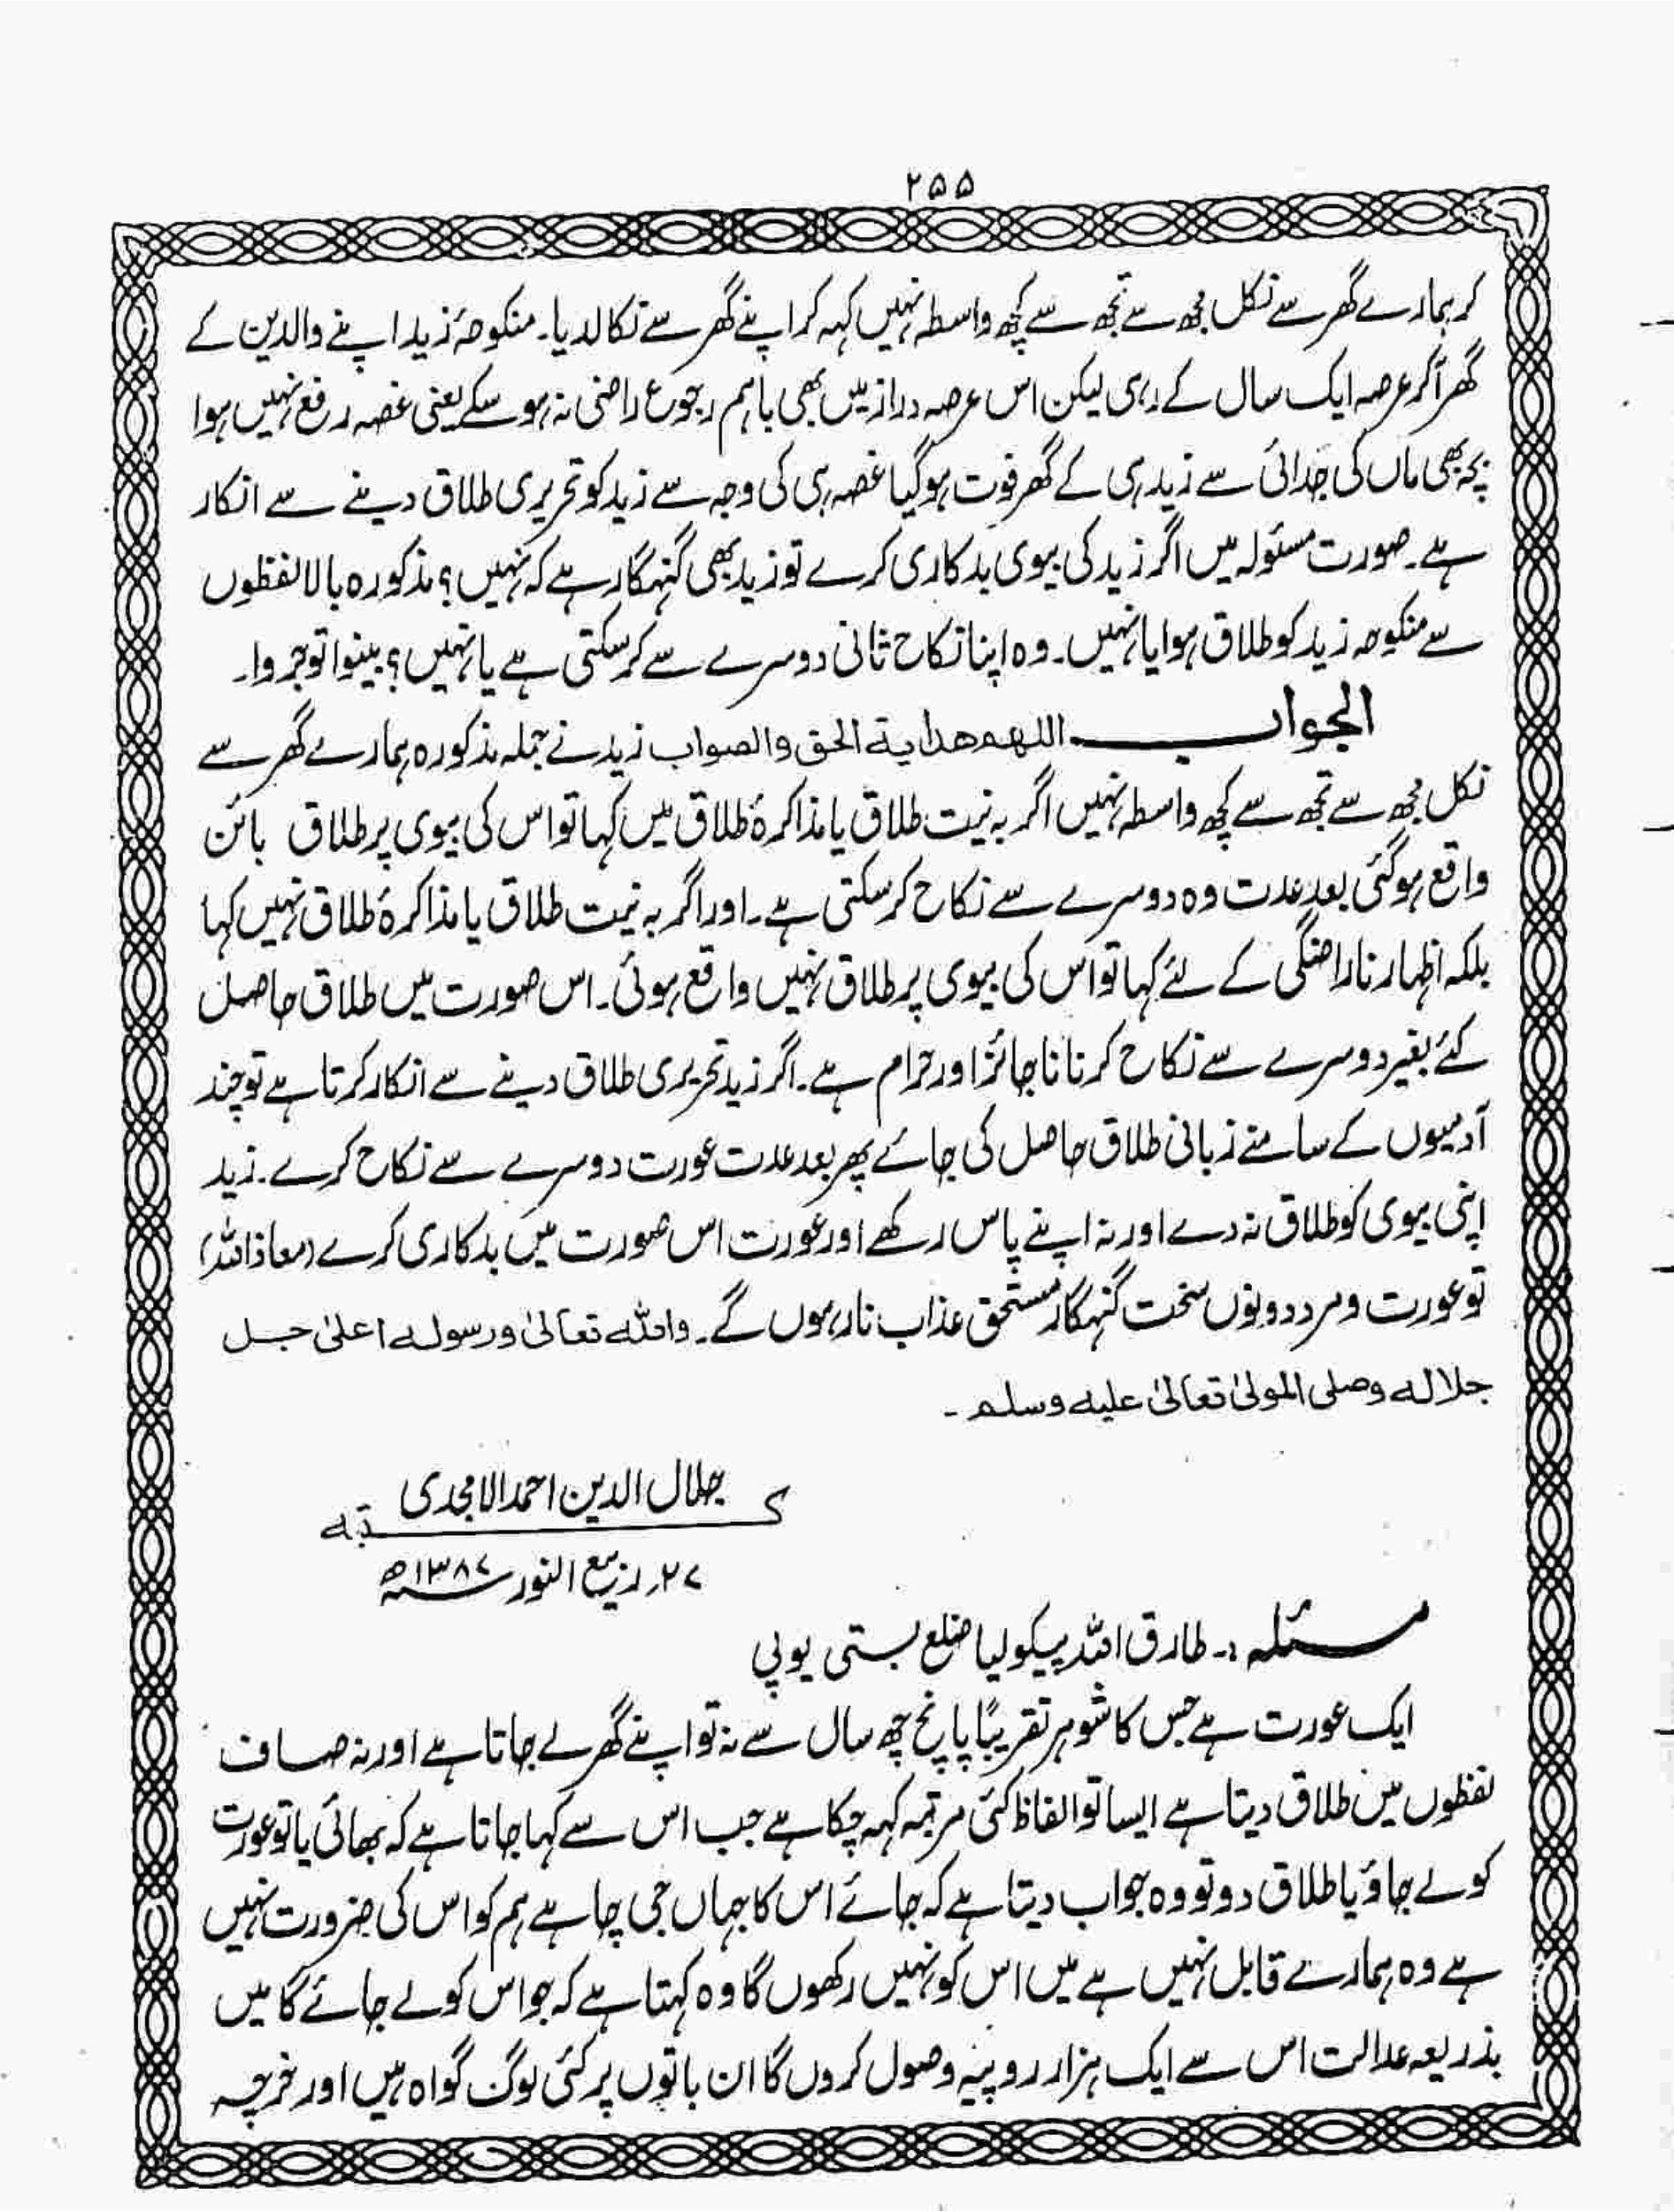 ۲۵۵
کر ہمارے گھر سے نکل مجھ سے تجھ سے کچھ واسطہ نہیں کہہ کر اپنے گھر سے نکالدیا۔ منکوحۂ زید اپنے والدین کے
گھر آکر عرصہ ایک سال کے رہی لیکن اس عرصہ دراز میں بھی باہم رجوع راضی نہ ہوسکے یعنی غصہ رفع نہیں ہوا
بچہ بھی ماں کی جدائی سے زید ہی کے گھر فوت ہوگیا غصہ ہی کی وجہ سے زید کو تحریری طلاق دینے سے انکار
ہے۔ صورت مسئولہ میں اگر زید کی بیوی بدکاری کرے تو زید بھی گنہگار ہے کہ نہیں؟ مذکورہ بالا لفظوں
سے منکوحہ زید کو طلاق ہوا یا نہیں۔ وہ اپنا نکاح ثانی دوسرے سے کرسکتی ہے یا نہیں؟ بینوا توجروا۔
الجواب ــــــ اللهم هداية الحق والصواب زید نے جملہ مذکورہ ہمارے گھر سے
نکل مجھ سے تجھ سے کچھ واسطہ نہیں اگر بہ نیت طلاق یا مذاکرۂ طلاق میں کہا تو اس کی بیوی پر طلاق بائن
واقع ہوگئی بعد عدت وہ دوسرے سے نکاح کرسکتی ہے۔ اور اگر بہ نیت طلاق یا مذاکرۂ طلاق نہیں کہا
بلکہ اظہار ناراضگی کے لئے کہا تو اس کی بیوی پر طلاق نہیں واقع ہوئی۔ اس صورت میں طلاق حاصل
کئے بغیر دوسرے سے نکاح کرنا ناجائز اور حرام ہے۔ اگر زید تحریری طلاق دینے سے انکار کرتا ہے تو چند
آدمیوں کے سامنے زبانی طلاق حاصل کی جائے پھر بعد عدت عورت دوسرے سے نکاح کرے۔ زید
اپنی بیوی کو طلاق نہ دے اور نہ اپنے پاس رکھے اور عورت اس صورت میں بدکاری کرے (معاذ اللہ)
تو عورت و مرد دونوں سخت گنہگار مستحق عذاب نار ہوں گے۔ واللہ تعالیٰ ورسولہ اعلیٰ جل
جلالہ وصلی المولیٰ تعالیٰ علیہ وسلم۔
جلال الدین احمد الامجدی
کتبه
۲۷؍ ربیع النور سنہ ۱۳۸۷ھ
مسئلہ :۔ طارق اللہ پیکولیا ضلع بستی یوپی
ایک عورت ہے جس کا شوہر تقریبًا پانچ چھ سال سے نہ تو اپنے گھر لے جاتا ہے اور نہ صاف
لفظوں میں طلاق دیتا ہے ایسا تو الفاظ کئی مرتبہ کہہ چکا ہے جب اس سے کہا جاتا ہے کہ بھائی یا تو عورت
کو لے جاؤ یا طلاق دو تو وہ جواب دیتا ہے کہ جائے اس کا جہاں جی چاہے ہم کو اس کی ضرورت نہیں
ہے وہ ہمارے قابل نہیں ہے میں اس کو نہیں رکھوں گا وہ کہتا ہے کہ جو اس کو لے جائے گا میں
بذریعہ عدالت اس سے ایک ہزار روپیہ وصول کروں گا ان باتوں پر کئی لوگ گواہ ہیں اور خرچہ